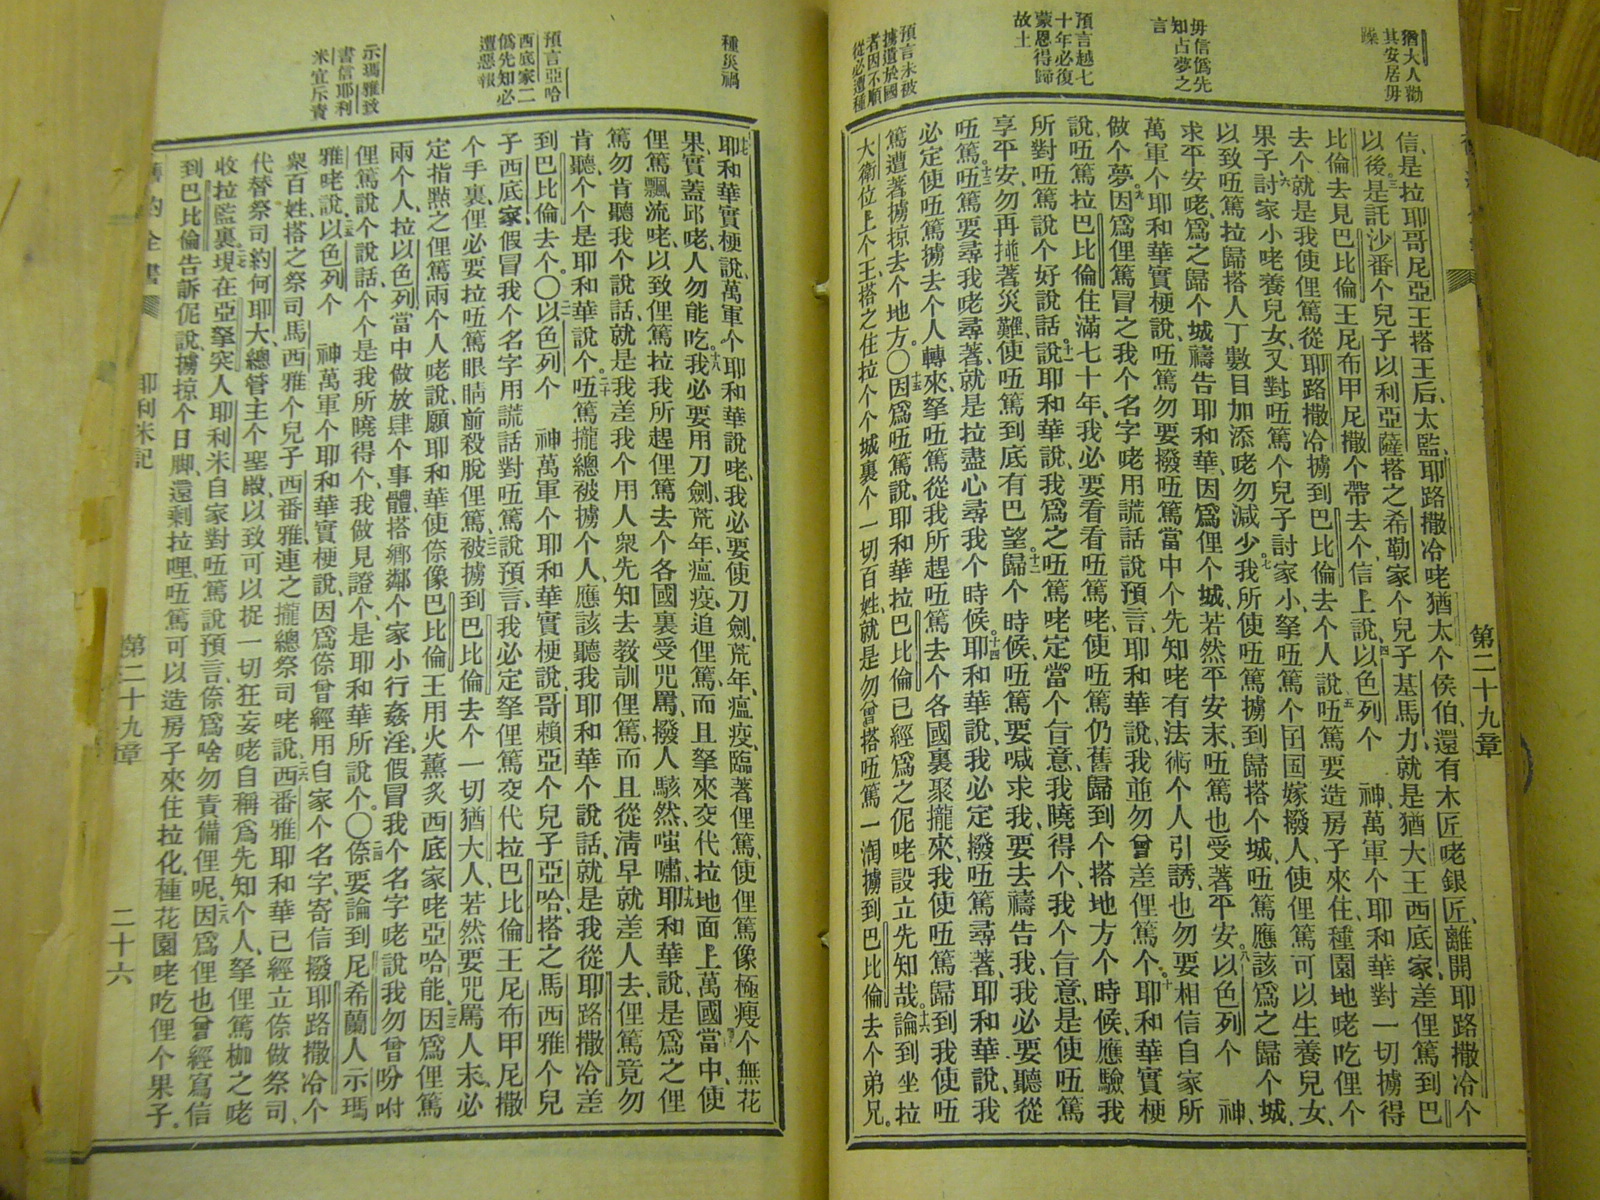 猶大人勸
其安居毋
躁
毋信僞先
知占夢之
言
預言越七
十年必復
蒙恩得歸
故土
預言未被
擄遺於國
者因不順
從必遭種
第二十九章
信、是拉耶哥尼亞王搭王后、太監、耶路撒冷咾猶太个侯伯、還有木匠咾銀匠、離開耶路撒冷个
以後、三是託沙番个兒子以利亞薩、搭之希勒家个兒子基馬力、就是猶大王西底家、差俚篤到巴
比倫去見巴比倫王尼布甲尼撒个、帶去个信上說、四以色列个 神、萬軍个耶和華、對一切擄得
去个、就是我使俚篤從耶路撒冷擄到巴比倫去个人說、五㕶篤要造房子來住、種園地咾吃俚个
果子、六討家小咾養兒女、又對㕶篤个兒子討家小、拏㕶篤个囝囡嫁撥人、使俚篤可以生養兒女、
以致㕶篤拉歸搭人丁數目加添咾勿減少、七我所使㕶篤擄到歸搭个城、㕶篤應該爲之歸个城、
求平安咾、爲之歸个城禱告耶和華、因爲俚个城、若然平安末、㕶篤也受著平安、八以色列个 神、
萬軍个耶和華實梗說、㕶篤勿要撥㕶篤當中个先知咾有法術个人引誘、也勿要相信自家所
做个夢、九因爲俚篤冒之我个名字咾用謊話說預言、耶和華說、我並勿曾差俚篤个、十耶和華實梗
說、㕶篤拉巴比倫住滿七十年、我必要看看㕶篤咾、使㕶篤仍舊歸到个搭地方个時候、應驗我
所對㕶篤說个好說話、十一說耶和華說、我爲之㕶篤咾定當个旨意、我曉得个、我个旨意、是使㕶篤
享平安、勿再捱著災難、使㕶篤到底有巴望歸个、十二時候、㕶篤要喊求我、要去禱告我、我必要聽從
㕶篤、十三㕶篤要尋我咾尋著、就是拉盡心尋我个時候、十四耶和華說、我必定撥㕶篤尋著、耶和華說、我
必定使㕶篤擄去个人轉來、拏㕶篤從我所趕㕶篤去个各國裏聚攏來、我使㕶篤歸到我使㕶
篤遭著擄掠去个地方。〇十五因爲㕶篤說、耶和華拉巴比倫已經爲之伲咾設立先知哉、十六論到坐拉
大衛位上个王、搭之住拉个个城裏个一切百姓、就是勿曾搭㕶篤一淘擄到巴比倫去个弟兄。
種災禍
預言亞哈
西底家二
僞先知必
遭惡報
示瑪雅致
書信耶利
米宜斥責
十七耶和華實梗說、萬軍个耶和華說咾、我必要使刀劍、荒年、瘟疫、臨著俚篤、使俚篤像極瘦个無花
果、實蓋邱咾、人勿能吃、十八我必要用刀劍、荒年、瘟疫、追俚篤、而且拏來交代拉地面上萬國當中、使
俚篤飄流咾、以致俚篤拉我所趕俚篤去个各國裏受咒罵、撥人駭然、嗤嘯、十九耶和華說、是爲之俚
篤勿肯聽我个說話、就是我差我个用人衆先知去教訓俚篤、而且從淸早就差人去、俚篤竟勿
肯聽个、个是耶和華說个、二十㕶篤攏總被擄个人、應該聽我耶和華个說話、就是我從耶路撒冷差
到巴比倫去个。〇二一以色列个 神、萬軍个耶和華實梗說、哥賴亞个兒子亞哈、搭之馬西雅个兒
子西底家、假冒我个名字、用謊話對㕶篤說預言、我必定拏俚篤交代拉巴比倫王尼布甲尼撒
个手裏、俚必要拉㕶篤眼睛前殺脫俚篤、二二被擄到巴比倫去个一切猶大人、若然要咒罵人末、必
定指點之俚篤兩个人咾說、願耶和華使倷像巴比倫王用火薰炙西底家咾亞哈能、二三因爲俚篤
兩个人、拉以色列當中做放肆个事體、搭鄉鄰个家小行姦淫、假冒我个名字咾說我勿曾吩咐
俚篤說个說話、个个是我所曉得个、我做見證个、是耶和華所說个。〇二四倷要論到尼希蘭人示瑪
雅咾說、二五以色列个 神、萬軍个耶和華實梗說、因爲倷曾經用自家个名字、寄信撥耶路撒冷个
衆百姓、搭之祭司馬西雅个兒子西番雅、連之攏總祭司咾說、二六西番雅耶和華已經立倷做祭司、
代替祭司約何耶大、總管主个聖殿、以致可以捉一切狂妄咾自稱爲先知个人、拏俚篤枷之咾
收拉監裏、二七現在亞拏突人耶利米、自家對㕶篤說預言、倷爲啥勿責備俚呢、二八因爲俚也曾經寫信
到巴比倫告訴伲說、擄掠个日脚、還剩拉哩、㕶篤可以造房子來住拉化、種花園咾吃俚个果子。
舊約全書
耶利米記
第二十九章
二十六